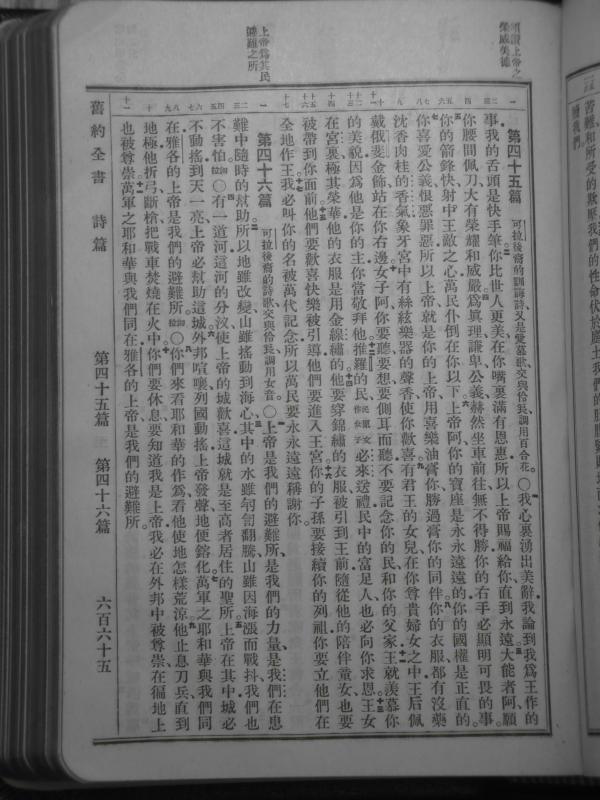 上帝爲其民
避難之所
第四十五篇 可拉後裔的訓誨詩又是愛慕歌交與伶長調用百合花。○我心裏湧出美辭我論到我爲王作的
事我的舌頭是快手筆。你比世人更美在你嘴裏滿有恩惠所以上帝賜福給你直到永遠。大能者阿願
你腰間佩刀大有榮耀和威嚴。爲眞理謙卑公義赫然坐車前往無不得勝你的右手必顯明可畏的事。
你的箭鋒快射中王敵之心萬民仆倒在你以下。上帝阿你的寶座是永永遠遠的你的國權是正直的。
你喜愛公義恨惡罪惡所以上帝就是你的上帝用喜樂油膏你勝過膏你的同伴。你的衣服都有沒藥
沈香肉桂的香氣象牙宮中有絲絃樂器的聲音使你歡喜。有君王的女兒在你尊貴婦女之中王后佩
戴俄斐金飾站在你右邊。女子阿你要聽要想要側耳而聽不要記念你的民和你的父家。王就羨慕你
的美貌因爲他是你的主你當敬拜他。推羅的民民原文作女子必來送禮民中的富足人也必向你求恩。王女
在宮裏極其榮華他的衣服是用金線繡的。他要穿錦繡的衣服被引到王前隨從他的陪伴童女也要
被帶到你面前。他們要歡喜快樂被引導他們要進入王宮。你的子孫要接續你的列祖你要立他們在
全地作王。我必叫你的名被萬代記念所以萬民要永永遠遠稱謝你。
第四十六篇 可拉後裔的詩歌交與伶長調用女音。○上帝是我們的避難所是我們的力量是我們在患
難中隨時的幫助。所以地雖改變山雖搖動到海心。其中的水雖匉訇翻騰山雖因海漲而戰抖我們也
不害怕。細拉○有一道河這河的分汊使上帝的城歡喜這城就是至高者居住的聖所。上帝在其中城必
不動搖到天一亮上帝必幫助這城。外邦喧嚷列國動搖上帝發聲地便鎔化。萬軍之耶和華與我們同
在雅各的上帝是我們的避難所。細拉○你們來看耶和華的作爲看他使地怎樣荒涼。他止息刀兵直到
地極他折弓斷槍把戰車焚燒在火中。你們要休息要知道我是上帝我必在外邦中被尊崇在徧地上
也被尊崇。萬軍之耶和華與我們同在雅各的上帝是我們的避難所。
舊約全書 詩篇 第四十五篇 第四十六篇 六百六十五